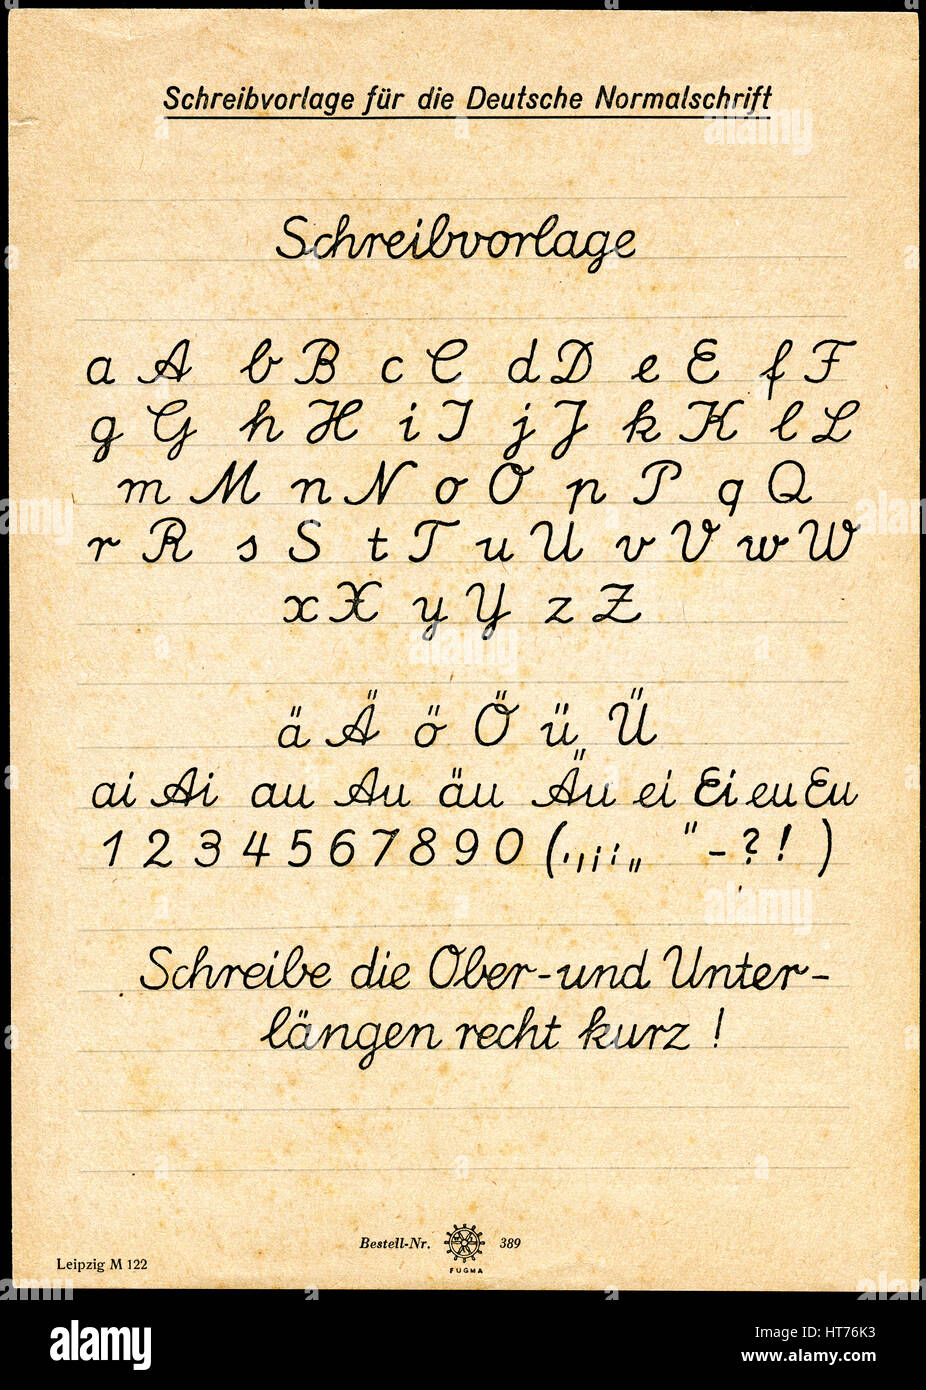 Schreibvorlage für die Deutsche Normalschrift
Schreibvorlage
a A b B c C d D e E f F
g G h H i I j J k K l L
m M n N o O p P q Q
r R s S t T u U v V w W
x X y Y z Z
ä Ä ö Ö ü Ü
ai Ai au Au äu Äu ei Ei eu Eu
1 2 3 4 5 6 7 8 9 0 (. , ; : „ “ - ? ! )
Schreibe die Ober- und Unter-
längen recht kurz !
Bestell-Nr. 389
FUGMA
Leipzig M 122
alamy
Image ID: HT76K3
www.alamy.com